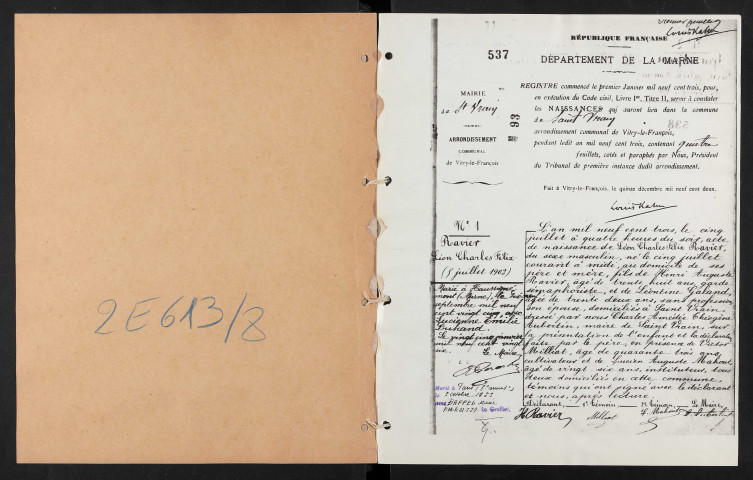 2E613/8
Louis Kahn
RÉPUBLIQUE FRANÇAISE
537
DÉPARTEMENT DE LA MARNE
MAIRIE
de St Vrain
ARRONDISSEMENT
COMMUNAL
de Vitry-le-François
93
REGISTRE commencé le premier Janvier mil neuf cent trois, pour,
en exécution du Code civil, Livre Ier, Titre II, servir à constater
les NAISSANCES qui auront lieu dans la commune
de Saint Vrain
arrondissement communal de Vitry-le-François,
pendant ledit an mil neuf cent trois, contenant quatre
feuillets, cotés et paraphés par Nous, Président
du Tribunal de première instance dudit arrondissement.
Fait à Vitry-le-François, le quinze décembre mil neuf cent deux.
Louis Kahn
No 1
Ravier
Léon Charles Félix
(5 juillet 1903)
Marié à
septembre mil neuf
cent vingt cinq avec
Lucienne Emilie
Durand
Le vingt cinq janvier
mil neuf cent vingt
six.
Le Maire
Marié à Paris
le Greffier.
L'an mil neuf cent trois, le cinq
juillet à quatre heures du soir, acte
de naissance de Léon Charles Félix Ravier,
du sexe masculin, né le cinq juillet
courant à midi, au domicile de ses
père et mère, fils de Henri Auguste
Ravier, âgé de trente huit ans, garde
sémaphoriste, et de Léontine Galand,
âgée de trente deux ans, sans profession,
son épouse, domiciliés à Saint Vrain
dressé par nous Charles Amédée Théogène
Aubertin, maire de Saint Vrain, sur
la présentation de l'enfant et la déclaration
faite par le père, en présence de Victor
Milliat, âgé de quarante trois ans,
cultivateur et de Lucien Auguste Mahout,
âgé de vingt six ans, instituteur, tous
deux domiciliés en cette commune,
témoins qui ont signé avec le déclarant
et nous, après lecture.
Le Déclarant, 1er Témoin 2e Témoin Le Maire,
H Ravier Milliat L. Mahout